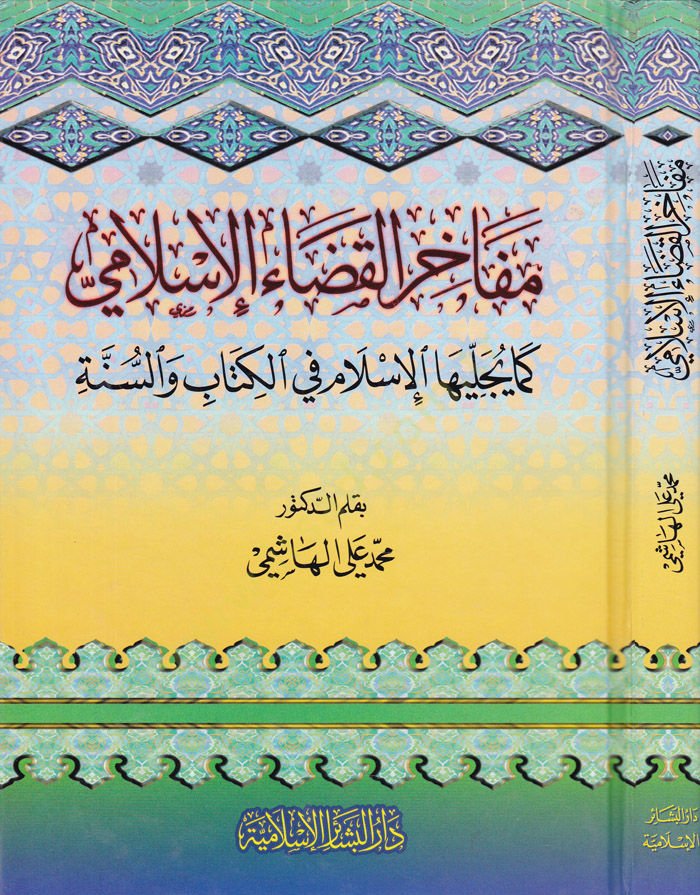 مَفَاخِرُ القَضَاءِ الإِسْلَامِيِّ
كَمَا يُجَلِّيهَا الإِسْلَام فِي الكِتَابِ وَالسُّنَّةِ
بقلم الدكتور
محمّد عَلي الهَاشِمي
دَارُ البَشَائِرِ الإِسْلَامِيَّة
مَفَاخِرُ القَضَاءِ الإِسْلَامِيِّ
محمّد عَلي الهَاشِمي
دَارُ البَشَائِرِ
الإِسْلَامِيَّة